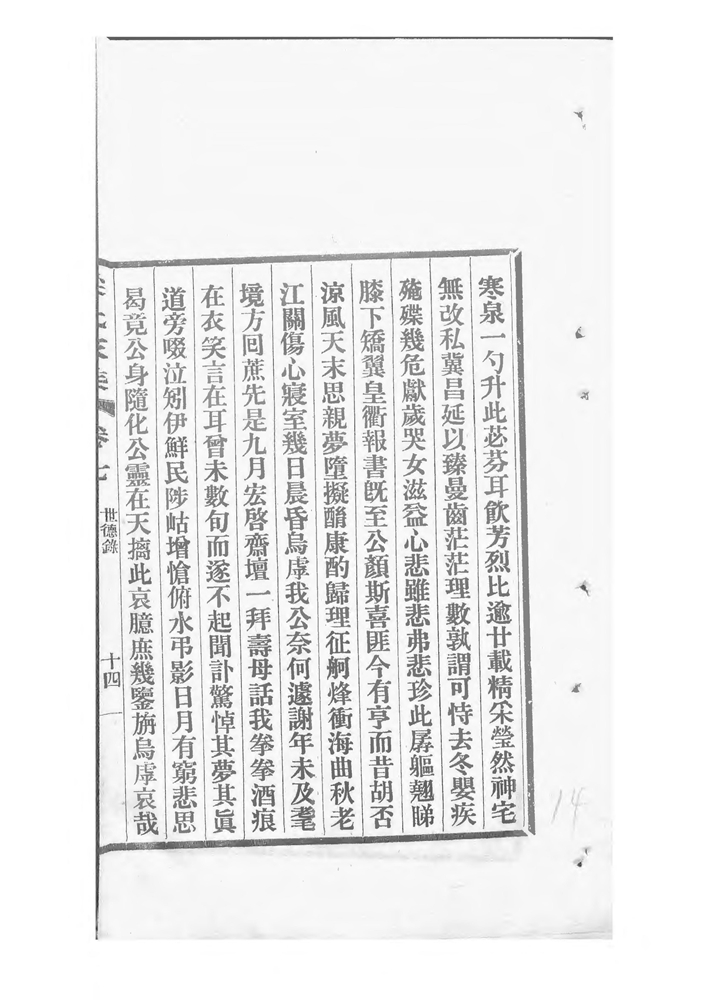 寒泉一勺升此苾芬耳飮芳烈比逾廿載精采瑩然神宅
無改私冀昌延以臻曼齒茫茫理數孰謂可恃去冬嬰疾
殗殜幾危獻歲哭女滋益心悲雖悲弗悲珍此孱軀翹睇
膝下矯翼皇衢報書旣至公顏斯喜匪今有亨而昔胡否
涼風天末思親夢墮擬酳康酌歸理征舸烽衝海曲秋老
江關傷心寢室幾日晨昏烏虖我公奈何遽謝年未及耄
境方囘蔗先是九月宏啓齋壇一拜壽母話我拳拳酒痕
在衣笑言在耳曾未數旬而遂不起聞訃驚悼其夢其眞
道旁啜泣矧伊鮮民陟岵增愴俯水弔影日月有窮悲思
曷竟公身隨化公靈在天摛此哀臆庶幾鑒旃烏虖哀哉
卷七
世德錄
十四
14